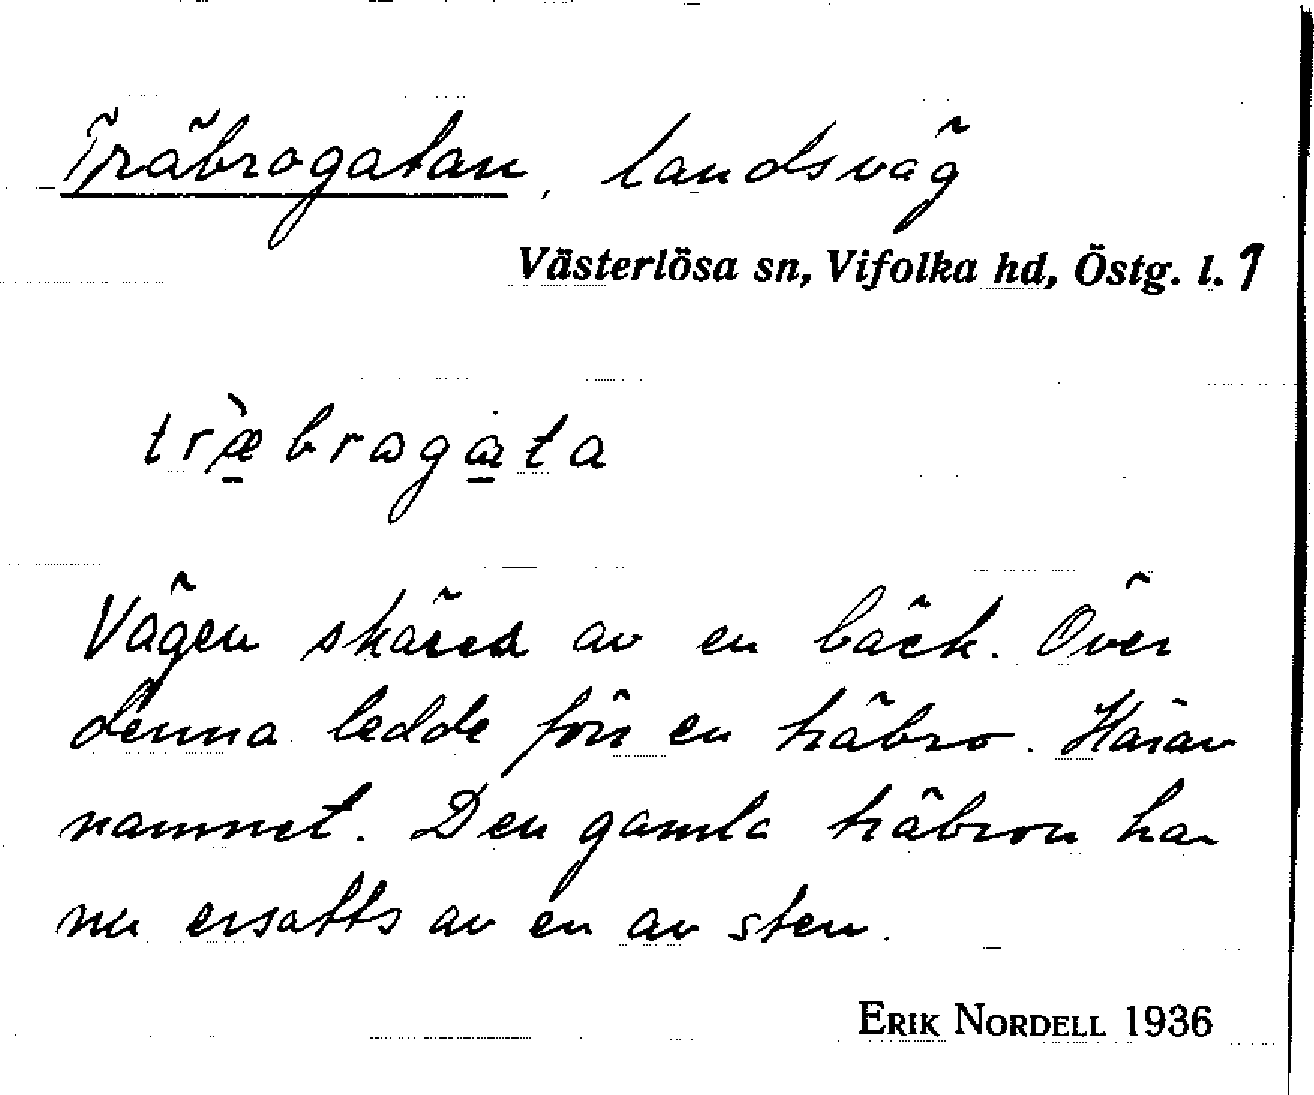 Träbrogatan, landsväg
Västerlösa sn, Vifolka hd, Östg. l. 7
træ̀brogata
Vägen skäres av en bäck. Över
denna ledde förr en träbro. Härav
namnet. Den gamla träbron har
nu ersatts av en av sten.
ERIK NORDELL 1936